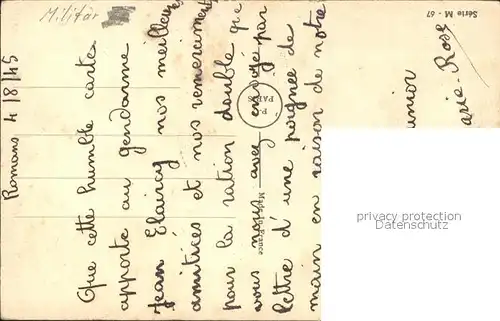 Militär
Série M - 67
Romans 4/8/45
Que cette humble carte
apporte au gendarme
Jean nos meilleures
amitiées et nos remerciements
pour la ration double que
vous nous avez envoyé par
lettre d'une poignée de
main en raison de notre
unior
Rose
PARIS
Made in France
privacy protection
Datenschutz